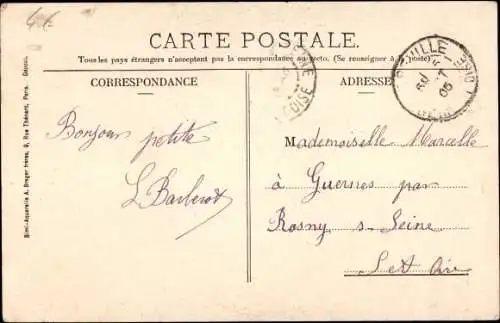 CARTE POSTALE.
Tous les pays étrangers n'acceptent pas la correspondance au recto. (Se renseigner à la poste)
CORRESPONDANCE
ADRESSE
Bonjour petite
L Barberot
Mademoiselle Marcelle
à Guernes par
Rosny s- Seine
S et Oise
Simili-Aquarelle A. Breger frères, 9, Rue Thénard, Paris.
OISE
VILLE
OISE
05